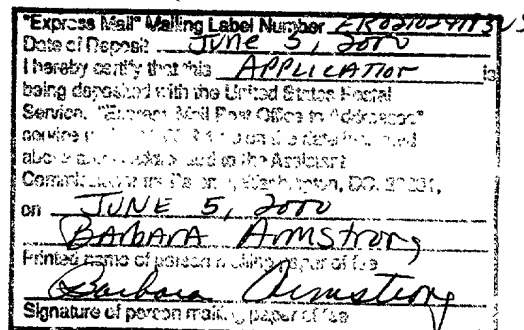 "Express Mail" Mailing Label Number
Date of Deposit June 5, 2000
I hereby certify that this APPLICATION is
being deposited with the United States Postal
Service, "Express Mail Post Office to Addressee"
service on the date
above and is addressed to the Assistant
Commissioner for Patents, Washington, DC. 20231,
on JUNE 5, 2000
BARBARA ArmStrong
Printed name of person mailing paper of fee
Barbara Armstrong
Signature of person mailing paper of fee